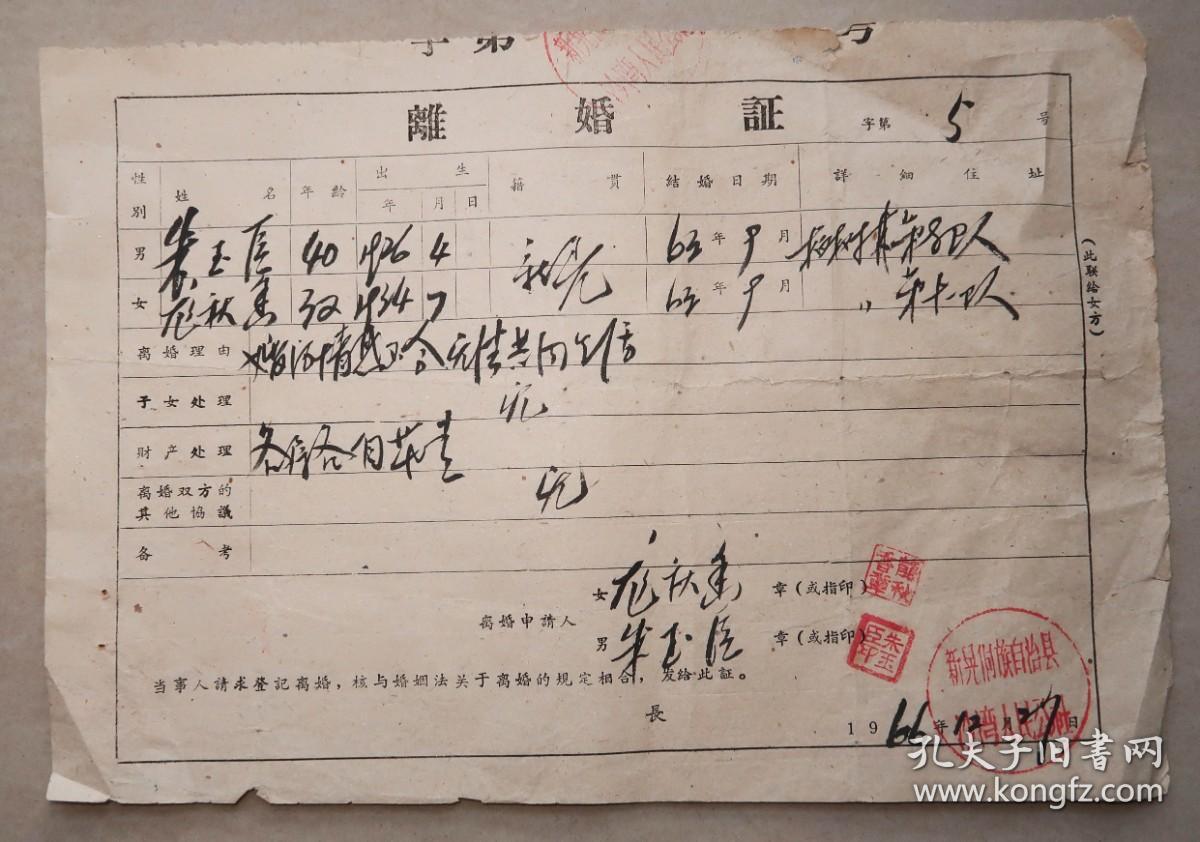 字第 号
離婚証 字第 5 号
性别 姓名 年齡 出生 年 月 日 籍貫 結婚日期 詳細住址
男 朱玉臣 40 1926 4 新晃 63年9月
女 龙秋香 32 1934 7 63年9月 〃 第十一队
离婚理由 婚后情感不合无法共同生活
子女处理 无
財产处理 各房各自
离婚双方的其他協議 无
备考
(此联給女方)
离婚申請人
女 龙秋香 章(或指印)
男 朱玉臣 章(或指印)
朱玉臣印
当事人請求登記离婚,核与婚姻法关于离婚的規定相合,发給此証。
長
1966年12月27日
新晃侗族自治县
孔夫子旧书网
www.kongfz.com